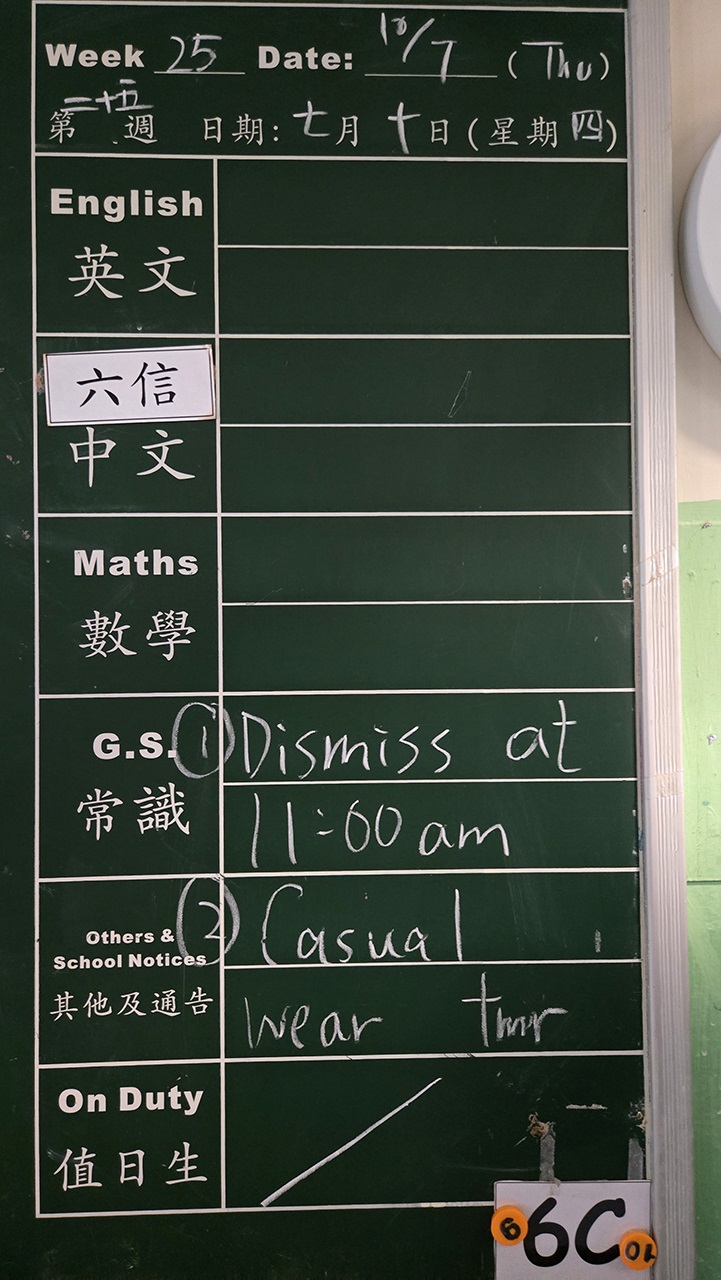 Week 25 Date: 10/7 (Thu)
第二十五週 日期:七月十日(星期四)
English
英文
六信
中文
Maths
數學
G.S. ① Dismiss at
常識 11:00 am
Others & ② Casual
School Notices
其他及通告 wear tmr
On Duty
值日生
6 6C 10